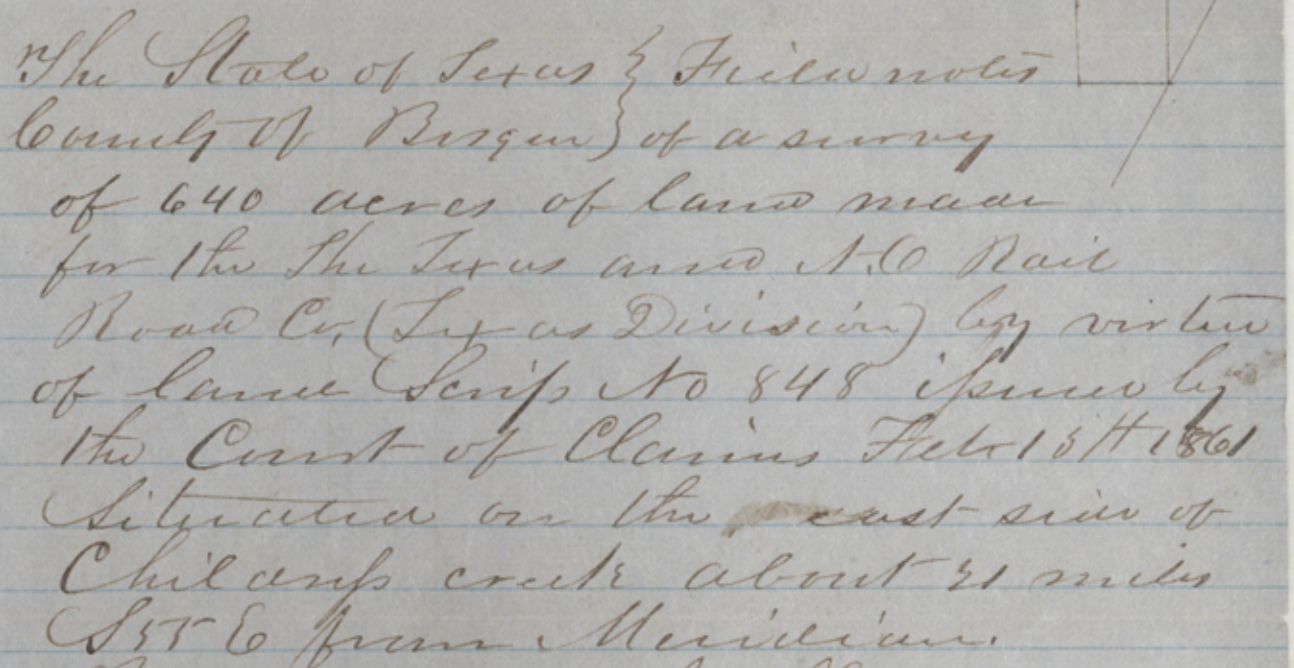 The State of Texas } Field notes
County of Bosque } of a survey
of 640 acres of land made
for the The Texas and N.O Rail
Road Co, (Texas Division) by virtue
of land Scrip No 848 issued by
the Court of Claims Feb 15th 1861
Situated on the east side of
Childress creek about 21 miles
S 55 E from Meridian.